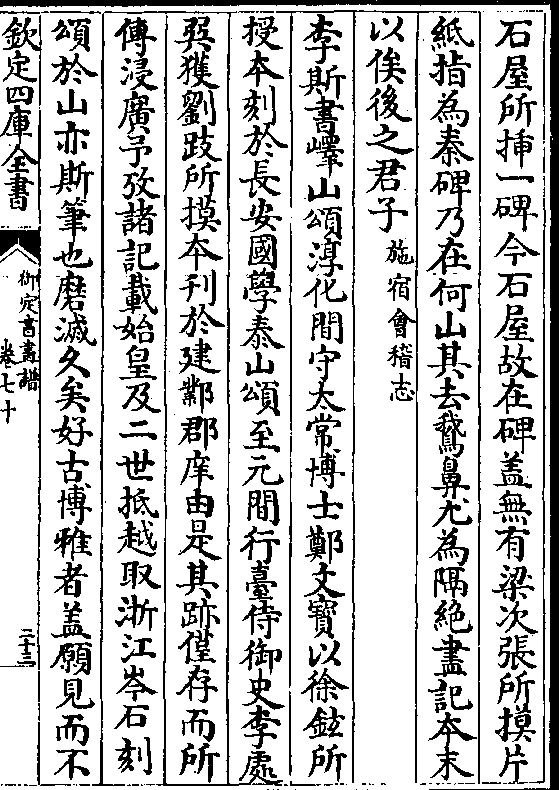 石屋所揷一碑今石屋故在碑盖無有梁次張所摸片
紙指為秦碑乃在何山其去鵝鼻尤為隔絶盡記夲末
以俟後之君子施宿會稽志
李斯書嶧山頌淳化間守太常博士鄭文寳以徐鉉所
授夲刻於長安國學泰山頌至元間行臺侍御史李處
巽獲劉跂所摸夲刋於建鄴郡庠由是其跡僅存而所
傳浸廣予攷諸記載始皇及二世抵越取浙江岑石刻
頌於山亦斯筆也磨滅久矣好古博雅者盖願見而不
欽定四庫全書
御定書畫譜
卷七十
二十三